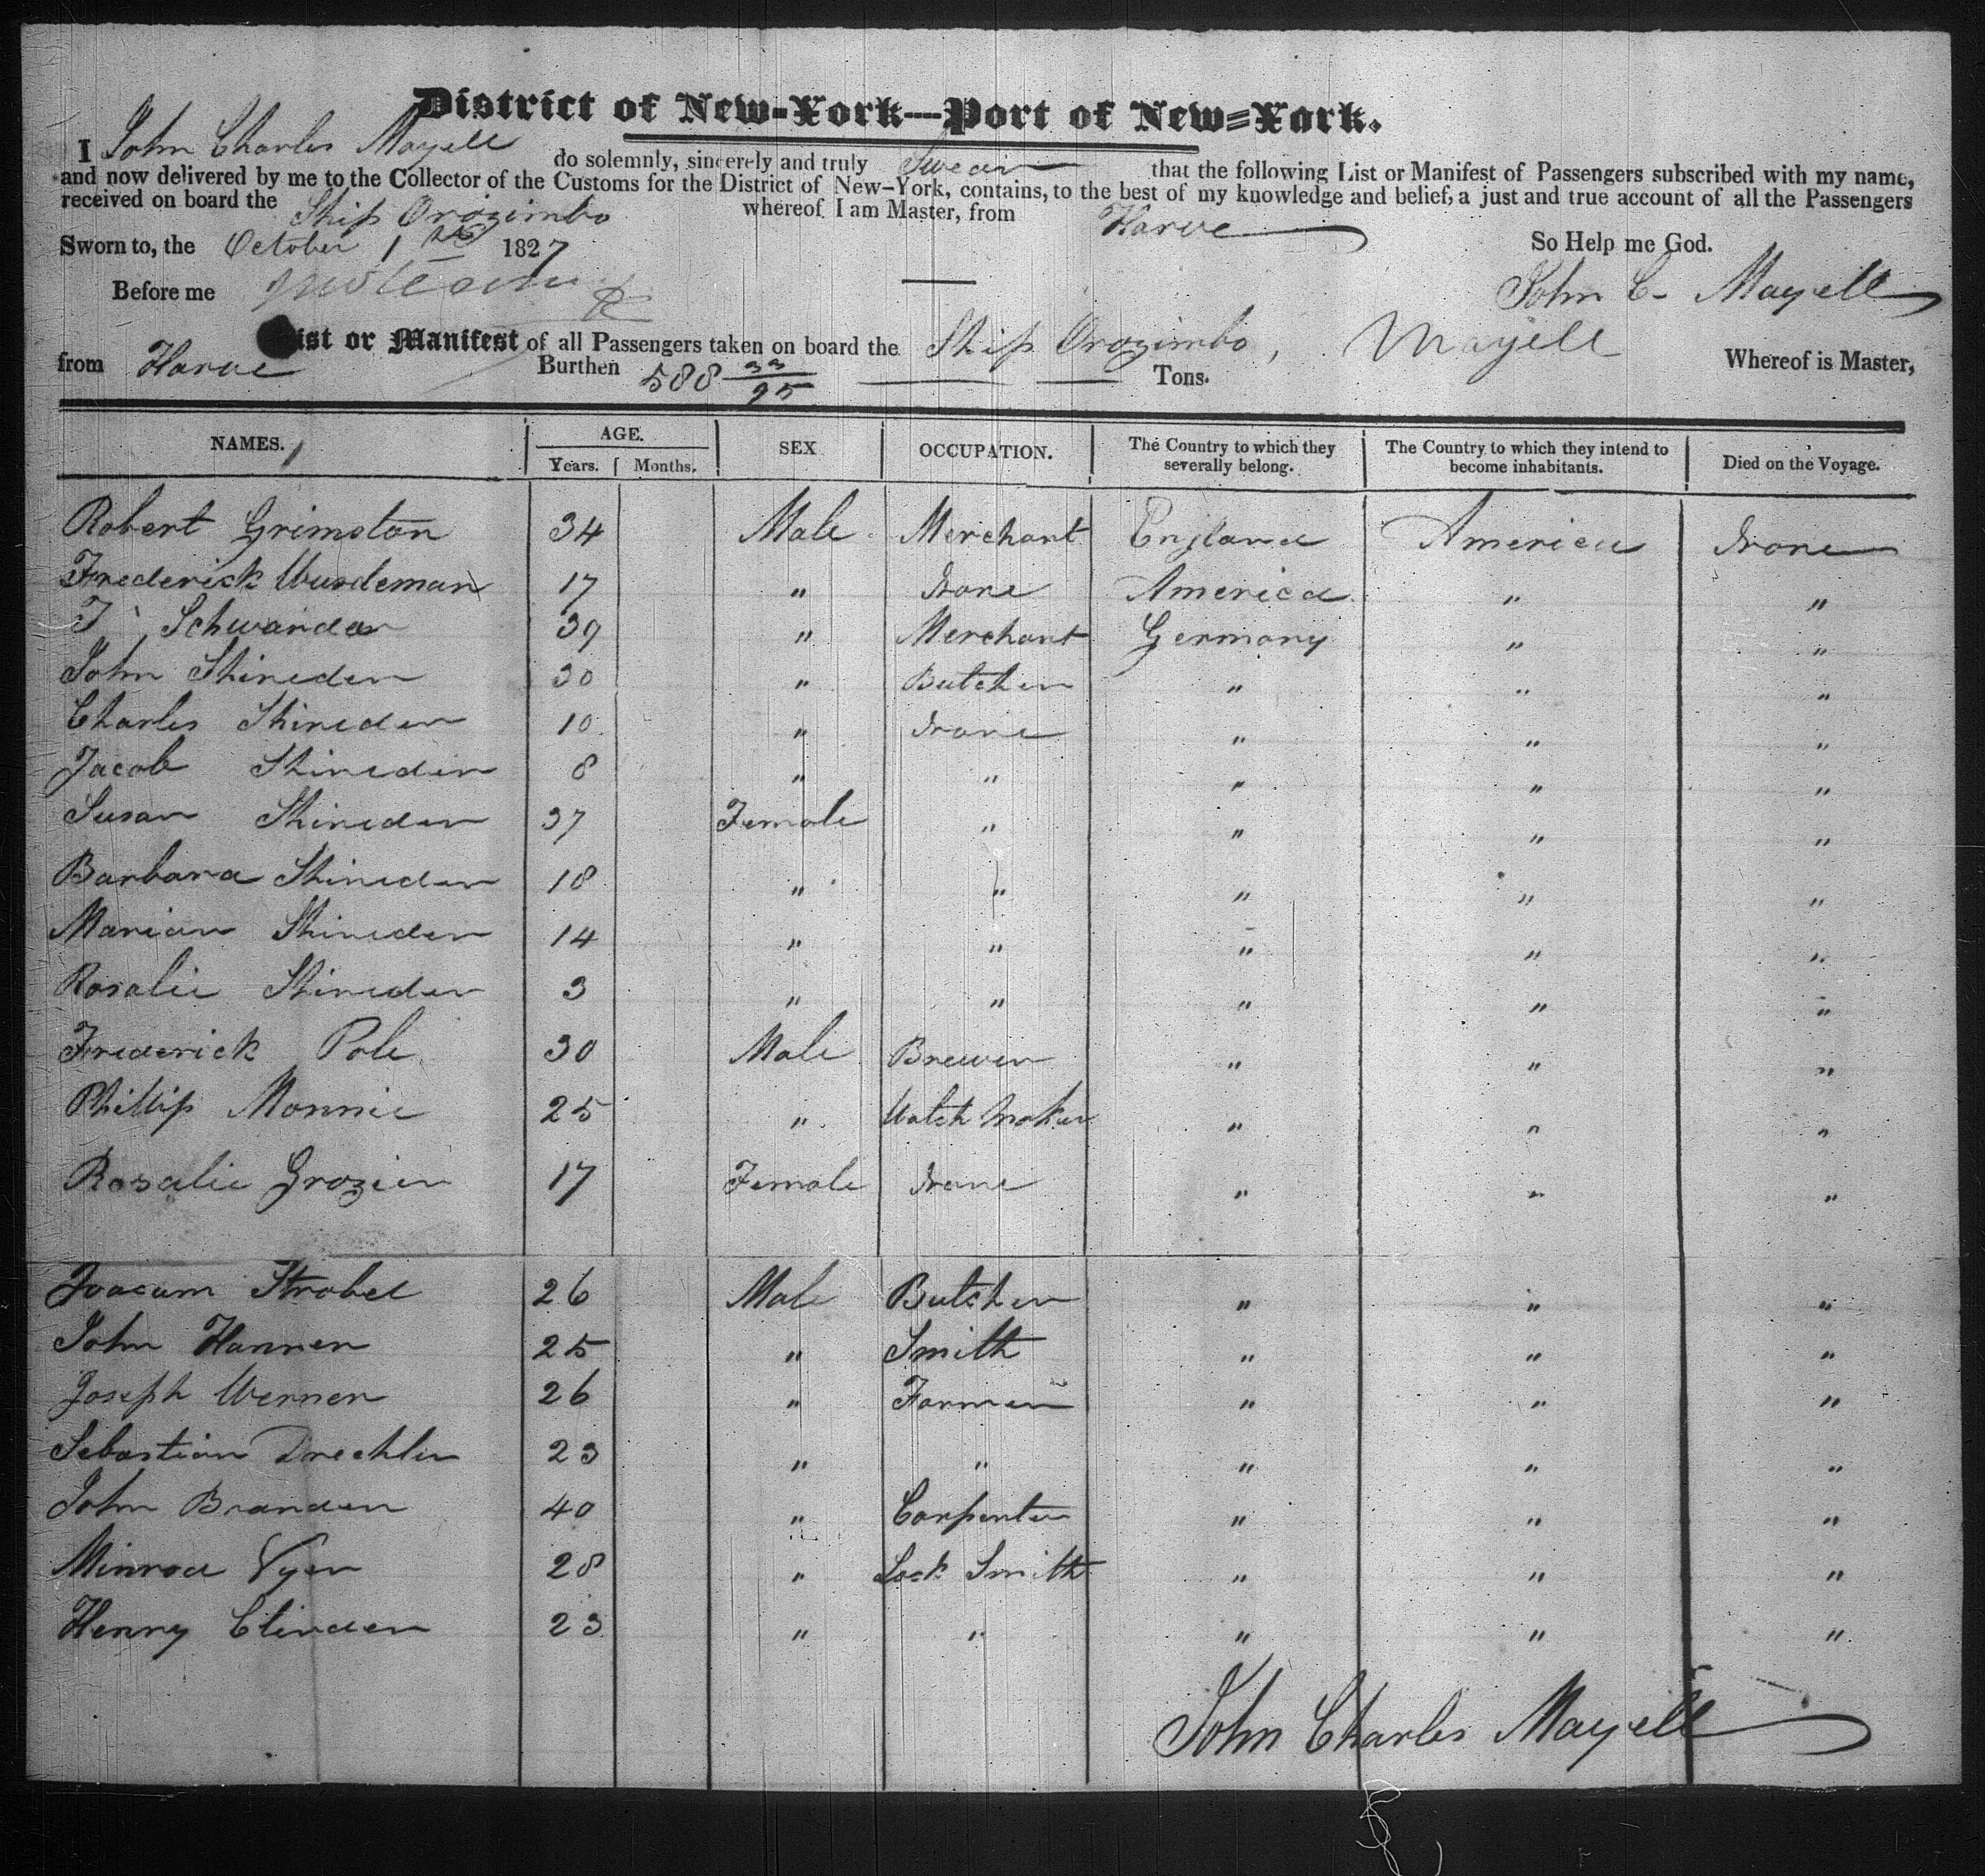 District of New-York—Port of New-York.
I John Charles Mayell do solemnly, sincerely and truly Swear that the following List or Manifest of Passengers subscribed with my name,
and now delivered by me to the Collector of the Customs for the District of New-York, contains, to the best of my knowledge and belief, a just and true account of all the Passengers
received on board the Ship Orozimbo whereof I am Master, from Harve
Sworn to, the October 1 1827 So Help me God.
Before me John C- Mayell
List or Manifest of all Passengers taken on board the Ship Orozimbo, Mayell Whereof is Master,
from Harve Burthen 588 33/95 Tons.
NAMES. AGE. Years. Months. SEX OCCUPATION. The Country to which they severally belong. The Country to which they intend to become inhabitants. Died on the Voyage.
Robert Grimston 34 Male Merchant England America None
Frederick Wurdeman 17 " None America " "
F Schwander 39 " Merchant Germany " "
John Shineder 30 " Butcher " " "
Charles Shineder 10 " None " " "
Jacob Shineder 8 " " " " "
Susan Shineder 37 Female " " " "
Barbara Shineder 18 " " " " "
Marian Shineder 14 " " " " "
Rosalie Shineder 3 " " " " "
Frederick Pole 30 Male Brewer " " "
Phillip Monnie 25 " Watch Maker " " "
Rosalie Grozier 17 Female None " " "
Joacum Strobel 26 Male Butcher " " "
John Hanner 25 " Smith " " "
Joseph Werner 26 " Farmer " " "
Sebastian Drechler 23 " " " " "
John Brander 40 " Carpenter " " "
Minrod Vyer 28 " Lock Smith " " "
Henry Clinder 23 " " " " "
John Charles Mayell